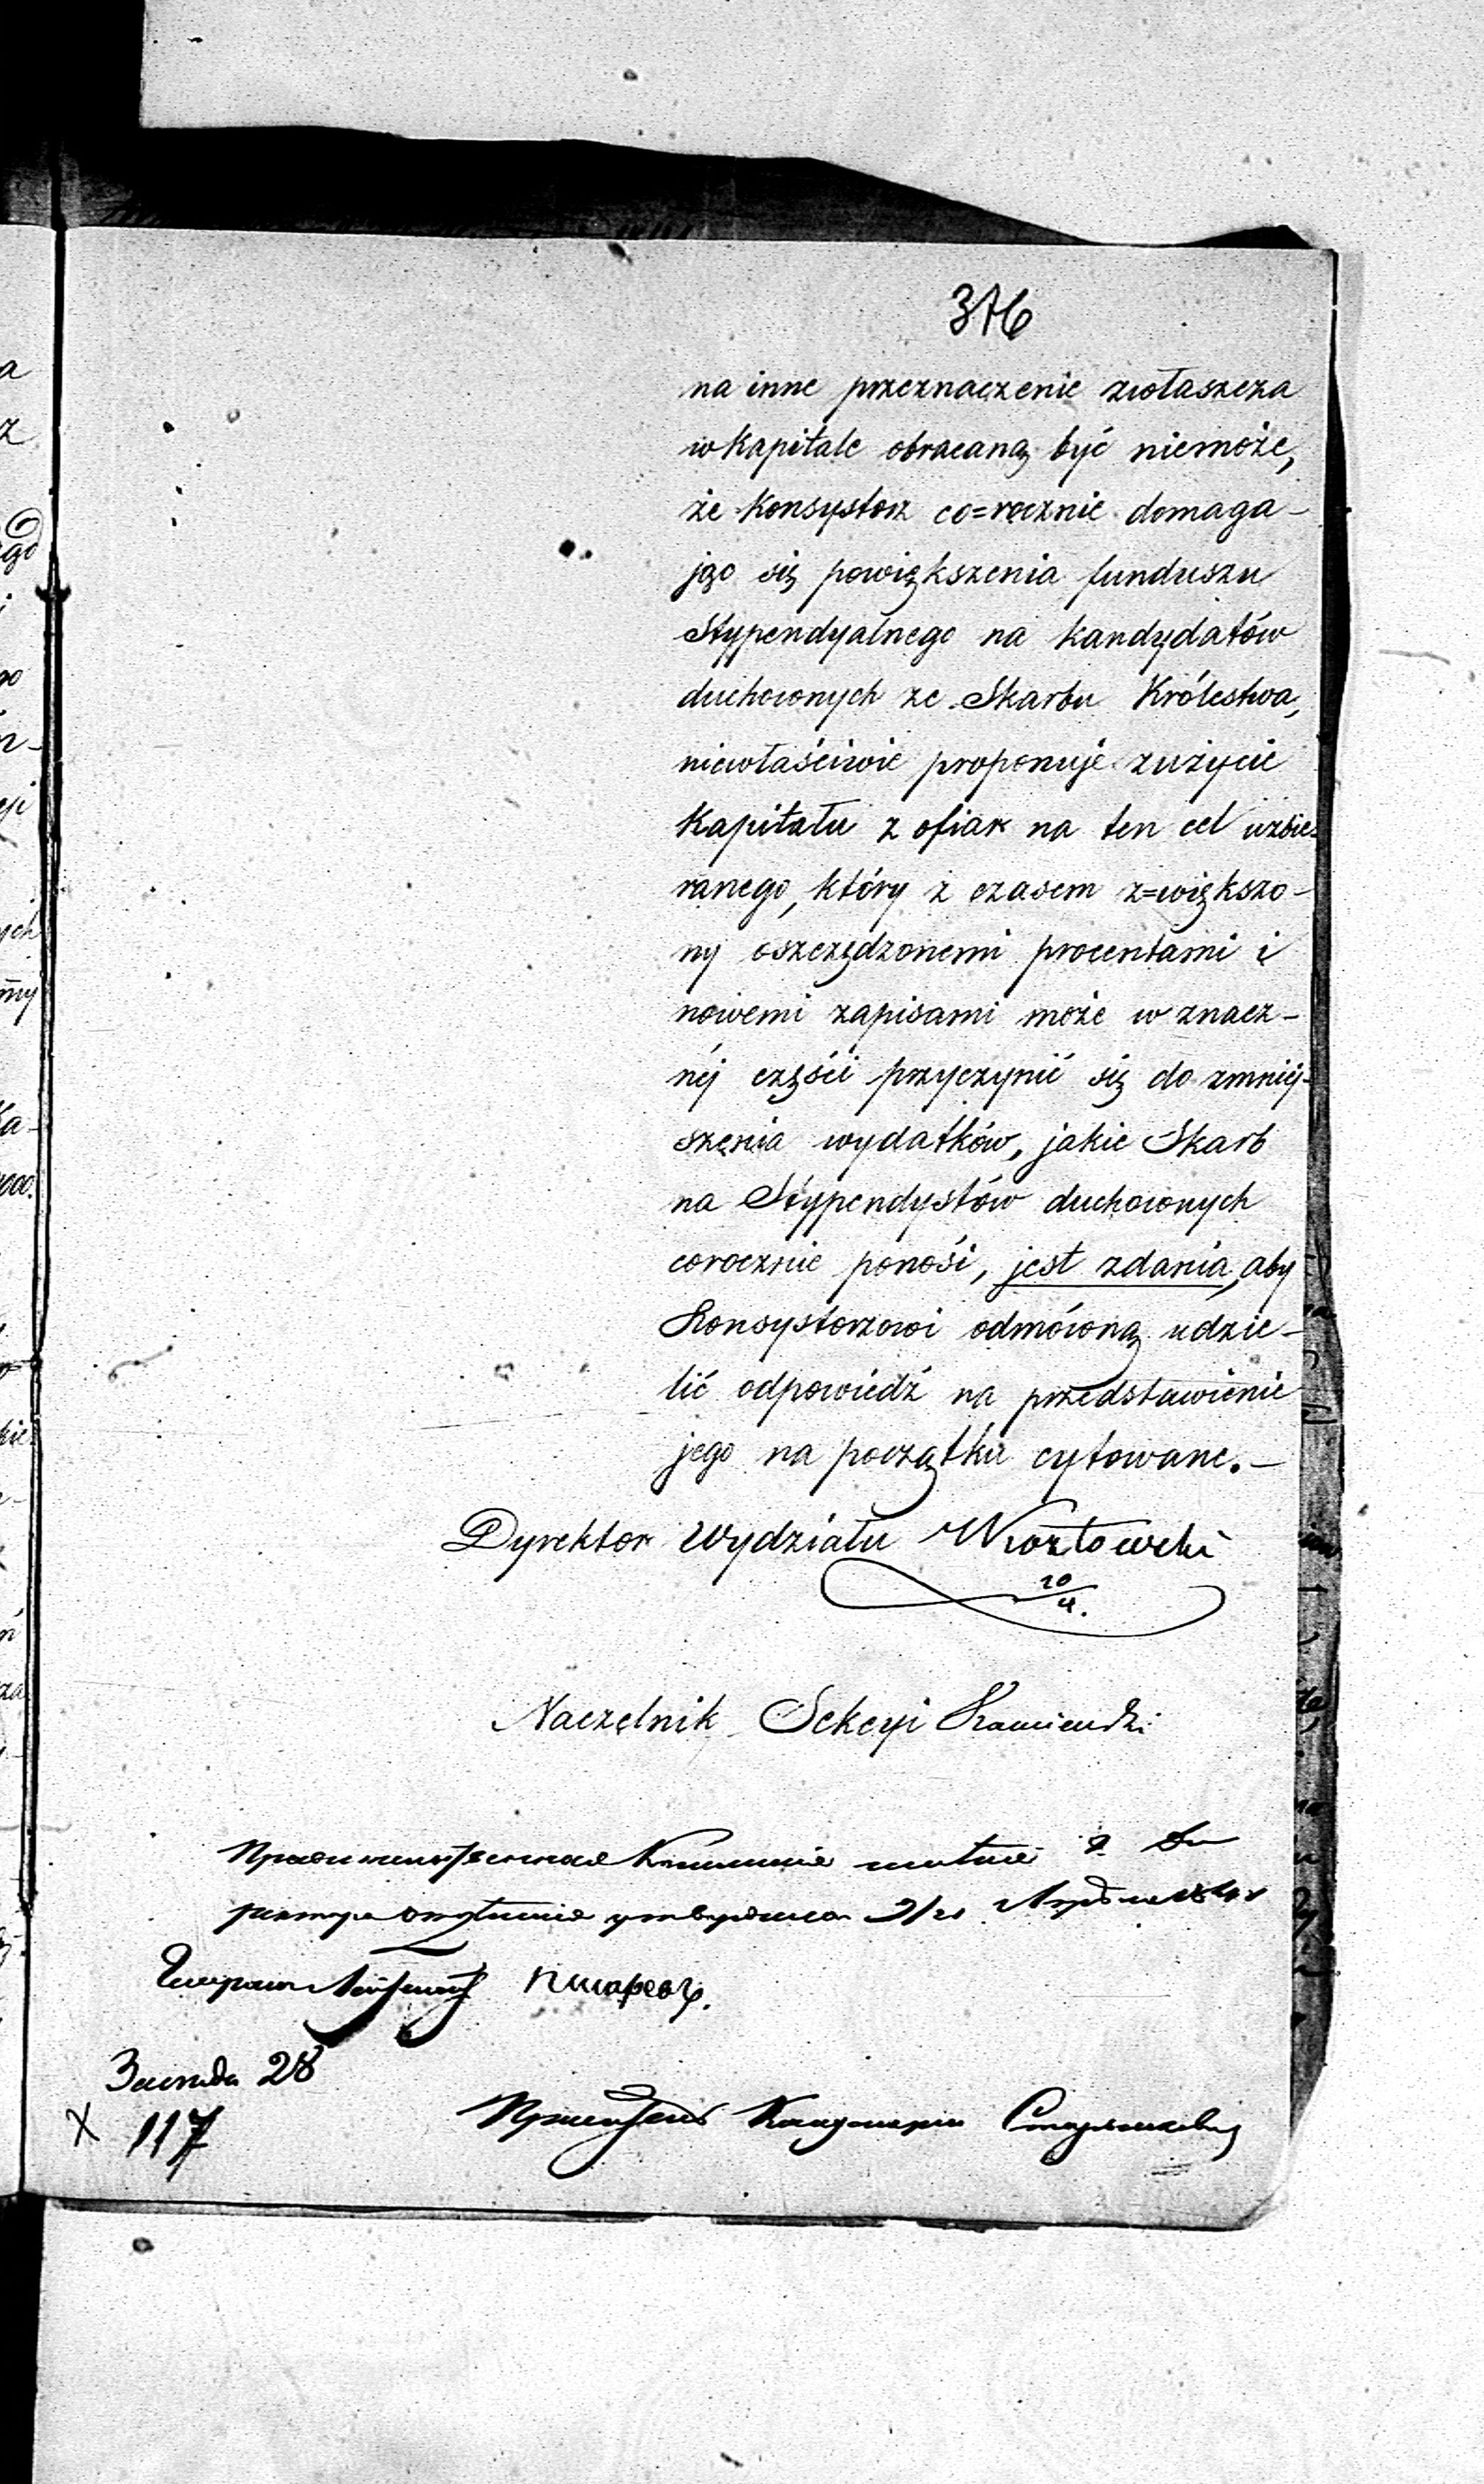 376
na inne przeznaczenie zwłaszcza
w kapitale obracaną być niemoże,
że Konsystorz co=rocznie domaga-
jąc się powiększenia funduszu
Stypendyalnego na kandydatów
duchownych ze Skarbu Królestwa,
niewłaściwie proponuje zużycie
Kapitału z ofiar na ten cel uzbie=
ranego, który z czasem z=większo-
ny oszczędzonemi procentami i
nowemi zapisami może w znacz-
néj części przyczynić się do zmniéj-
szenia wydatków, jakie Skarb
na Stypendystów duchownych
corocznie ponosi, jest zdania, aby
Konsystorzowi odmówną udzie-
lić odpowiedź na przedstawienie
jego na początku cytowane.-
Dyrektor Wydziału Kozłowski
20/4.
Naczelnik Sekcyi
Правительственная Коммисия
утвердила 9/21
Генерал Лейтенант Писарев.
28
117
Канцелярии